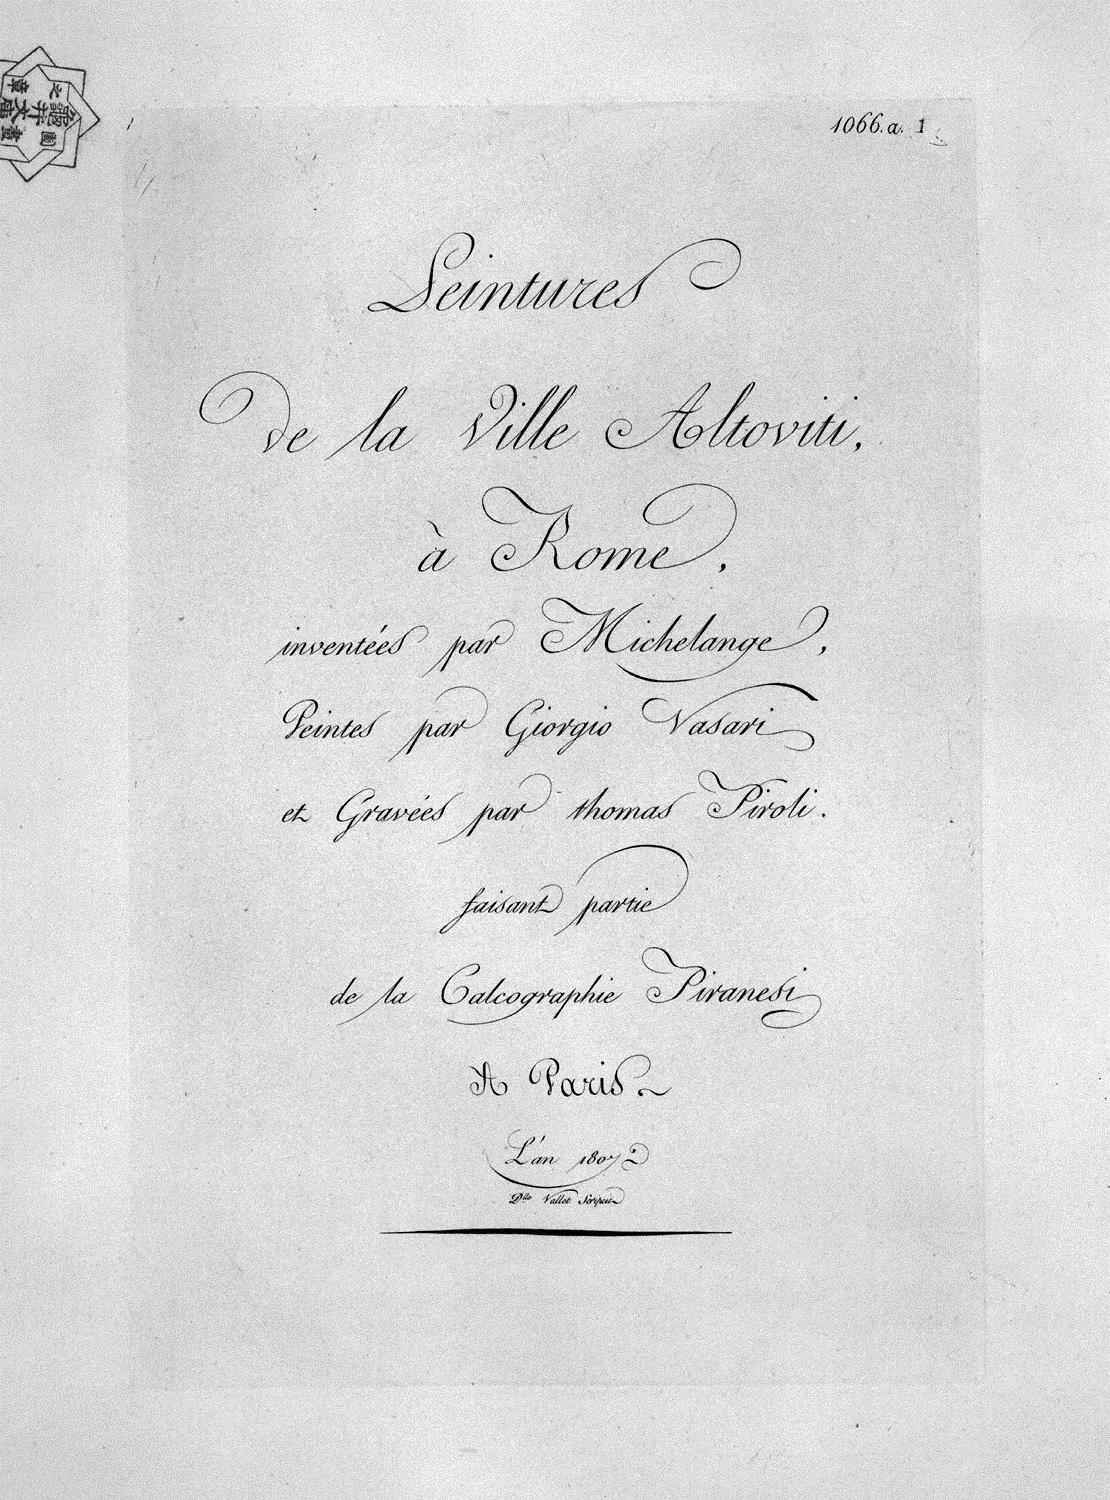 1066.a. 1
Peintures
de la Ville Altoviti,
à Rome,
inventées par Michelange,
Peintes par Giorgio Vasari
et Gravées par thomas Piroli.
faisant partie
de la Calcographie Piranesi
A Paris.
L'an 1807
Dlle Vallot Scripsit